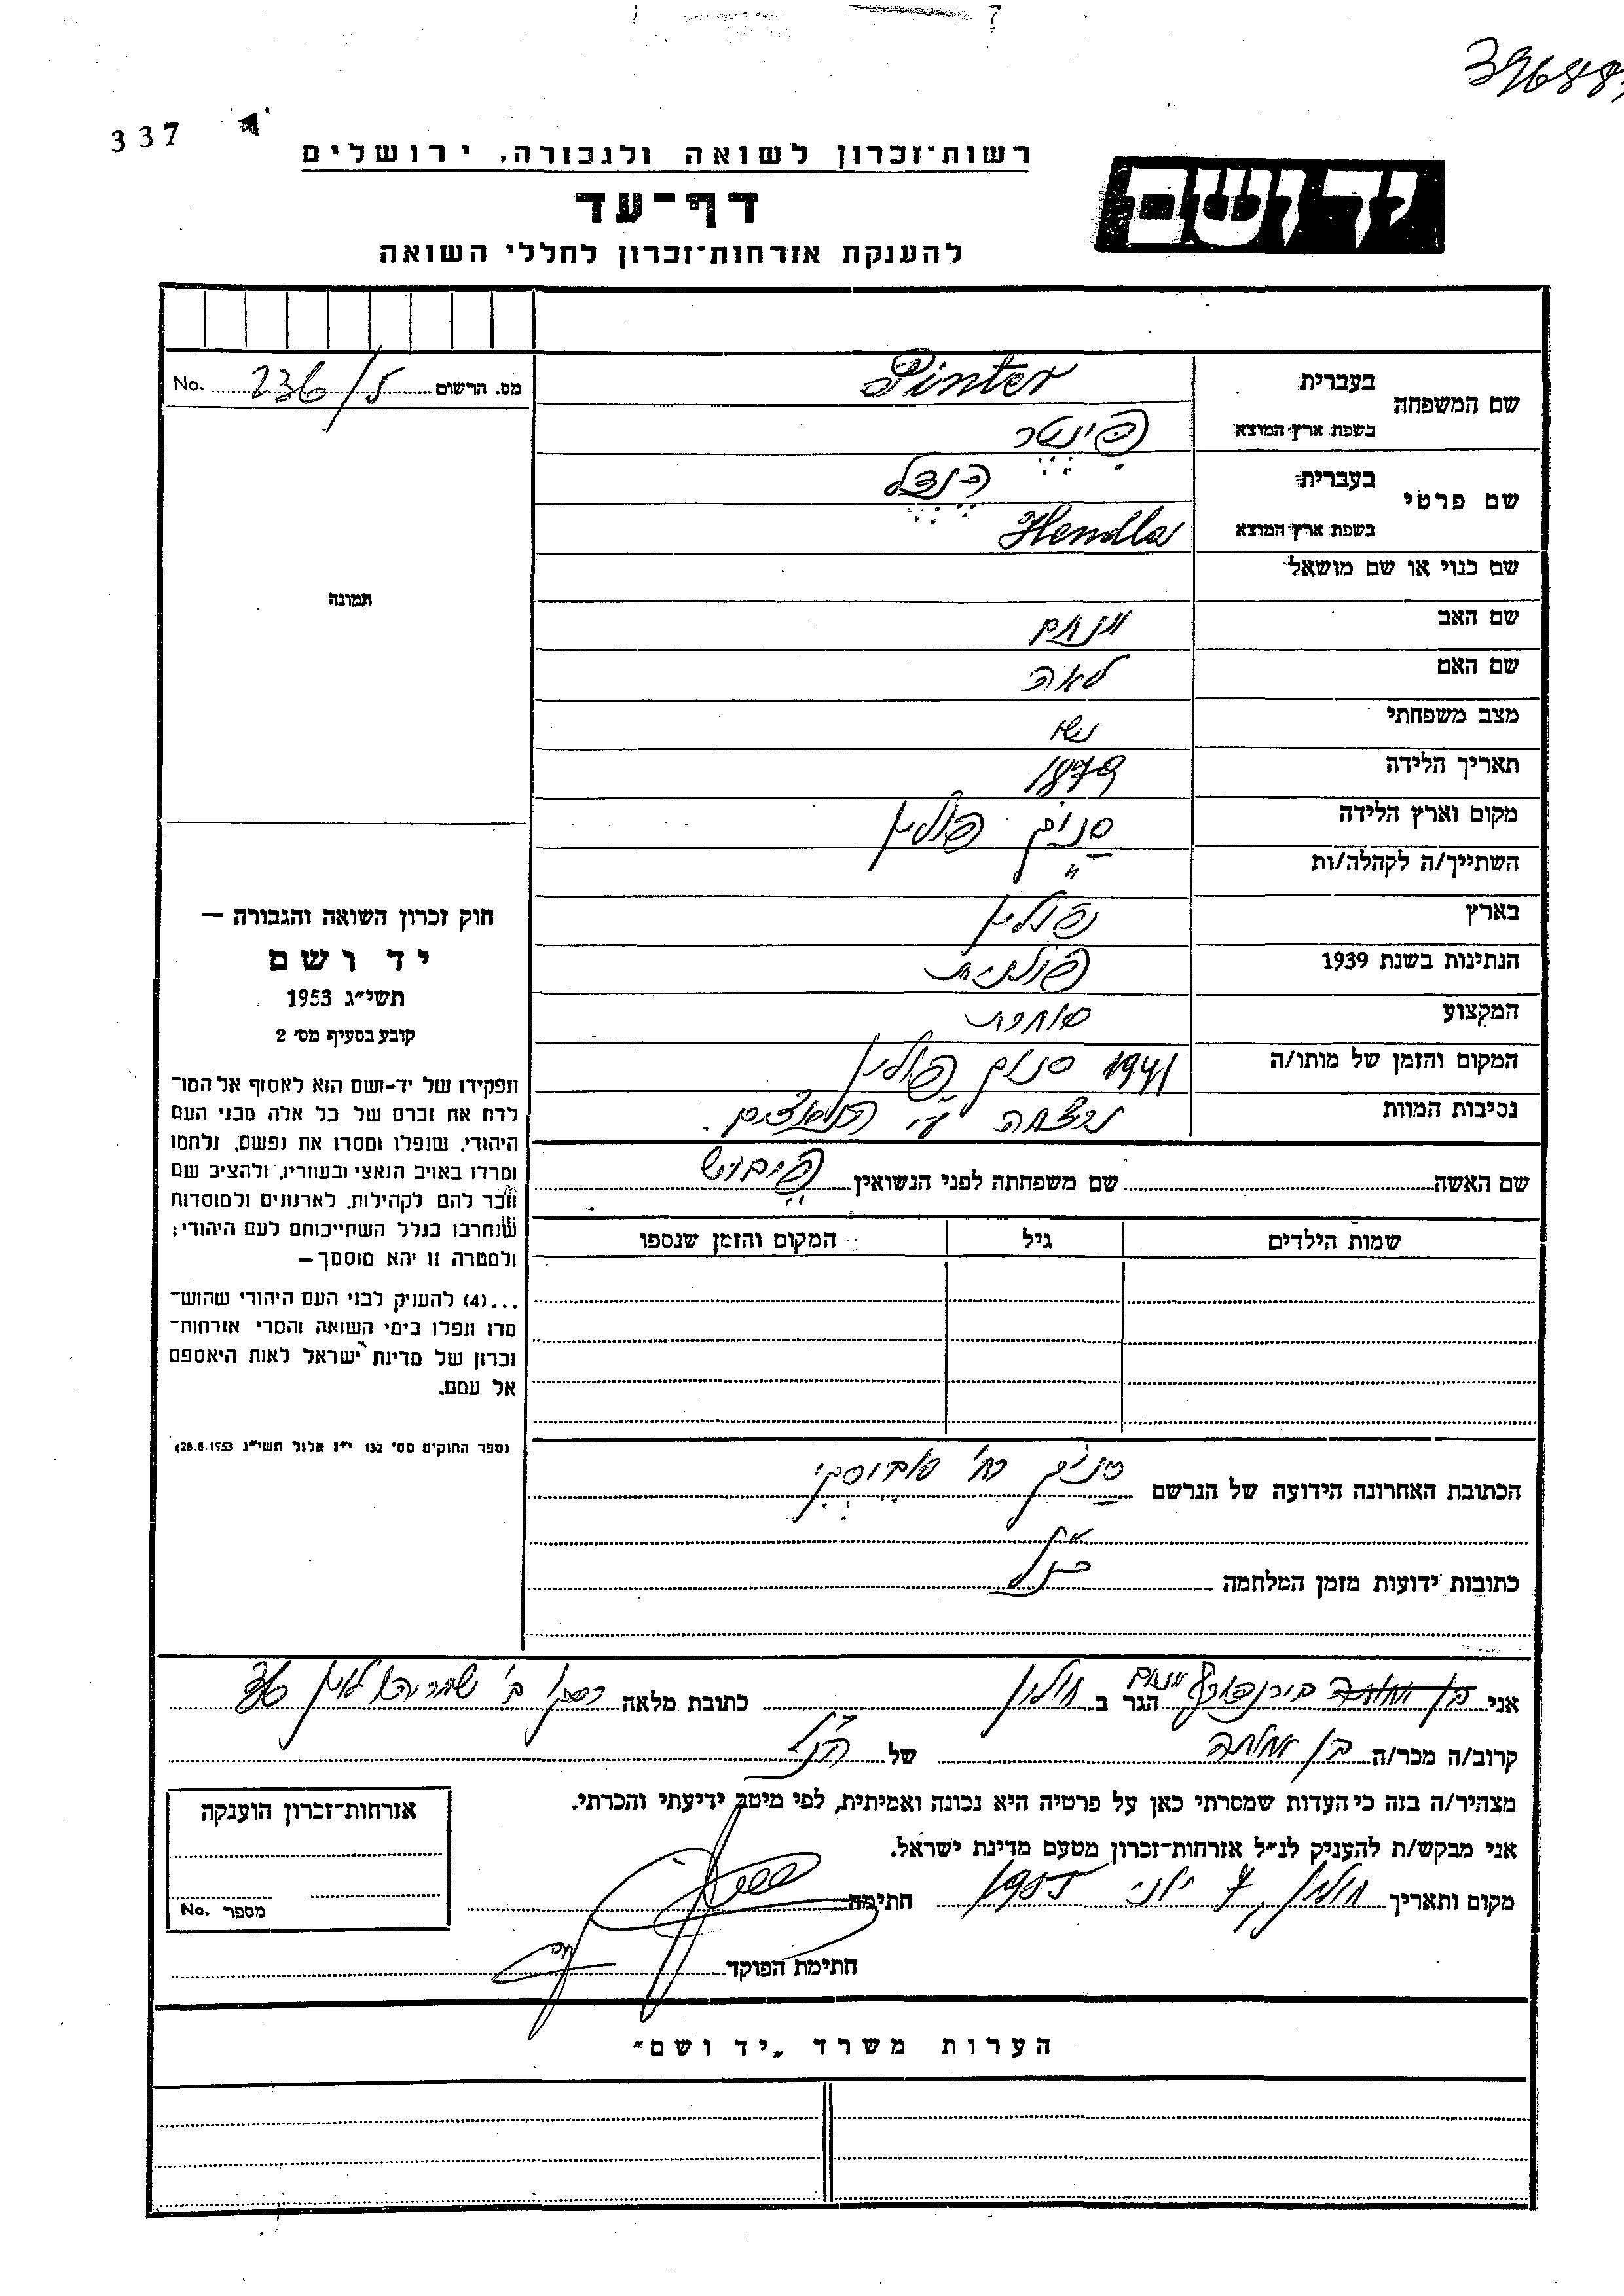 337
רשות־זכרון לשואה ולגבורה, ירושלים
דף־עד
להענקת אזרחות־זכרון לחללי השואה
יד ושם
מס. הרשום 236/5 No.
שם המשפחה בעברית Pinter
בשפת ארץ המוצא פינטר
שם פרטי בעברית הנדל
בשפת ארץ המוצא Hendla
שם כנוי או שם מושאל
שם האב מנחם
שם האם לאה
מצב משפחתי נשו
תאריך הלידה 1879
מקום וארץ הלידה סנוק פולין
השתייך/ה לקהלה/ות "
בארץ פולין
הנתינות בשנת 1939 פולנית
המקצוע סוחרת
המקום והזמן של מותו/ה 1941 סנוק פולין
נסיבות המוות נרצחה ע"י הנאצים.
שם האשה שם משפחתה לפני הנשואין
שמות הילדים גיל המקום והזמן שנספו
הכתובת האחרונה הידועה של הנרשם סנוק רח'
כתובות ידועות מזמן המלחמה כנ"ל
תמונה
חוק זכרון השואה והגבורה —
יד ושם
תשי״ג 1953
קובע בסעיף מס׳ 2
תפקידו של יד-ושם הוא לאסוף אל המו־
לדת את זכרם של כל אלה מבני העם
היהודי, שנפלו ומסרו את נפשם, נלחמו
ומרדו באויב הנאצי ובעוזריו, ולהציב שם
וזכר להם לקהילות, לארגונים ולמוסדות
שנחרבו בגלל השתייכותם לעם היהודי;
ולמטרה זו יהא מוסמך—
...(4) להעניק לבני העם היהודי שהוש־
מדו ונפלו בימי השואה והמרי אזרחות־
זכרון של מדינת ישראל לאות היאספם
אל עמם.
(ספר החוקים מס׳ 132 י״ז אלול תשי״ג 28.8.1953)
אני בירנפורץ מנחם הגר ב חולון כתובת מלאה רסקו ב' שמריהו לוין 36
קרוב/ה מכר/ה בן אחותה של הנ"ל
מצהיר/ה בזה כי העדות שמסרתי כאן על פרטיה היא נכונה ואמיתית, לפי מיטב ידיעתי והכרתי.
אני מבקש/ת להעניק לנ״ל אזרחות־זכרון מטעם מדינת ישראל.
מקום ותאריך חולון, 7 יוני 1955 חתימה
חתימת הפוקד
אזרחות־זכרון הוענקה
מספר No.
הערות משרד „יד ושם״